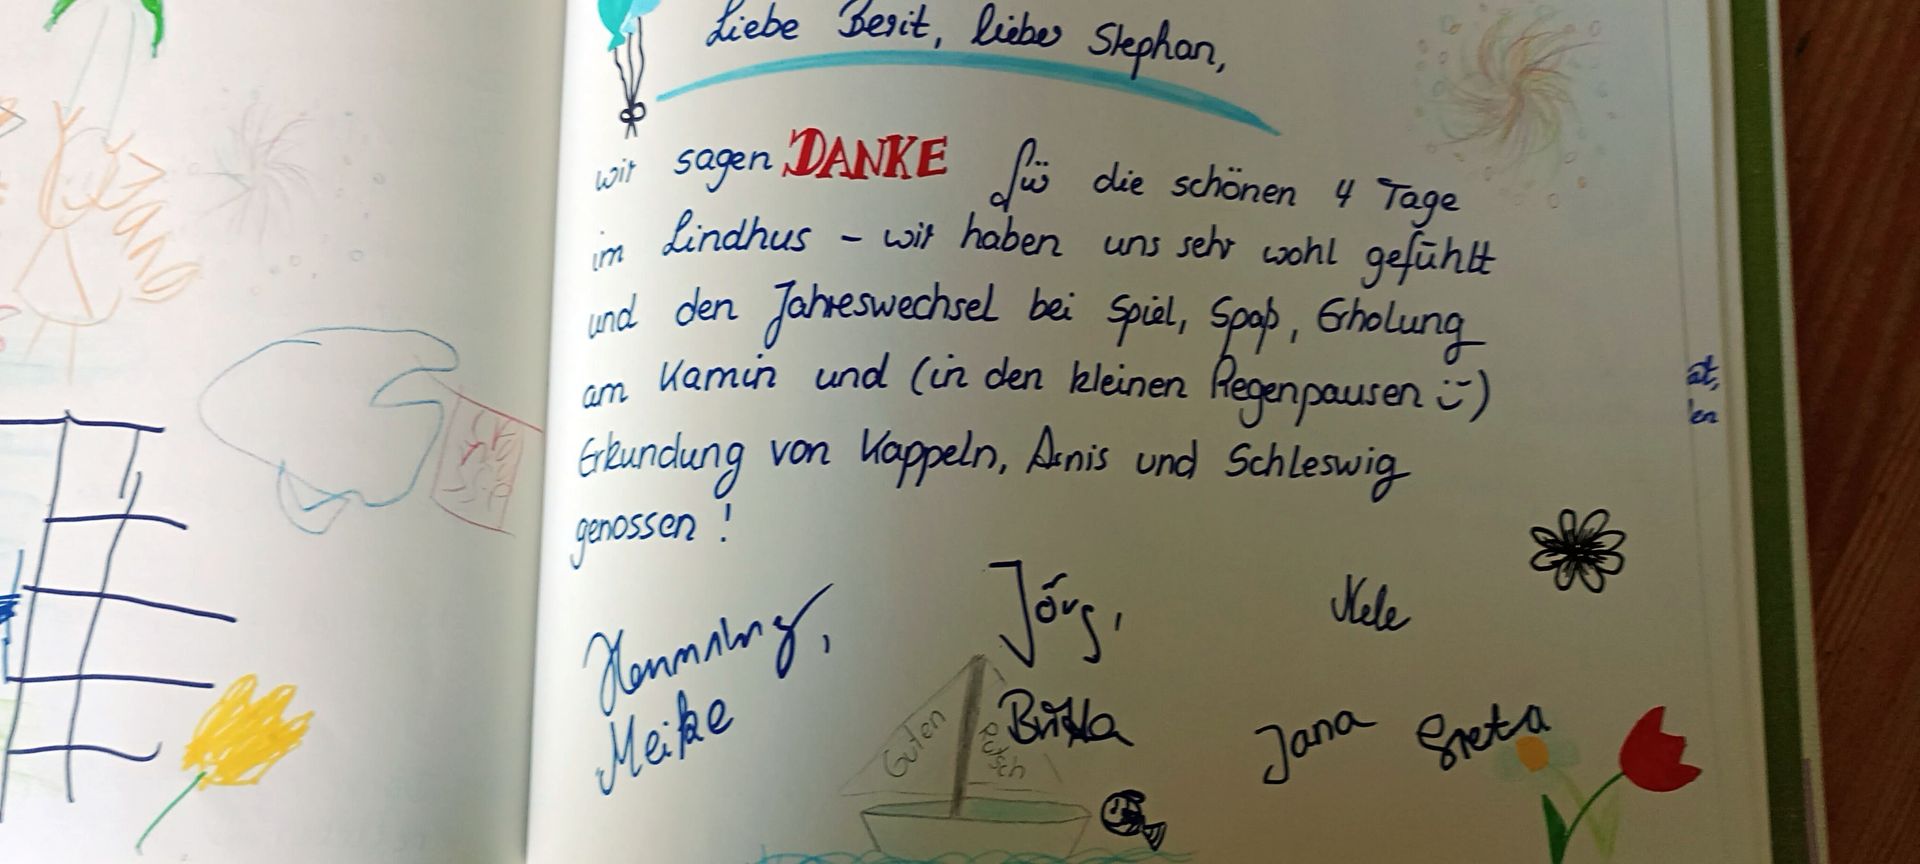 Liebe Berit, lieber Stephan,
wir sagen DANKE für die schönen 4 Tage
im Lindhus – wir haben uns sehr wohl gefühlt
und den Jahreswechsel bei Spiel, Spaß, Erholung
am Kamin und (in den kleinen Regenpausen :-)
Erkundung von Kappeln, Arnis und Schleswig
genossen!
Henning, Jörg, Nele
Meike Britta Jana Greta
Guten Rutsch
at,
en